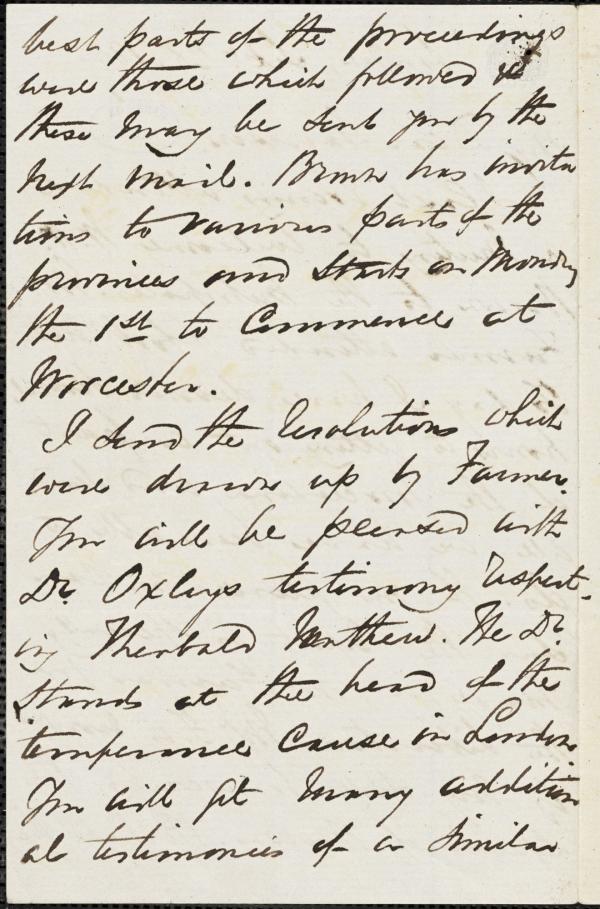 best parts of the proceedings
were those which followed &
these may be sent you by the
next mail. Brown has invita
tions to various parts of the
provinces and starts on Monday
the 1st to Commence at
Worcester.
I send the resolutions which
were drawn up by Farmer.
You will be pleased with
Dr. Oxleys testimony respect-
ing Theobald Matthew. The Dr.
stands at the head of the
temperance cause in London
You will get many addition
al testimonies of a similar